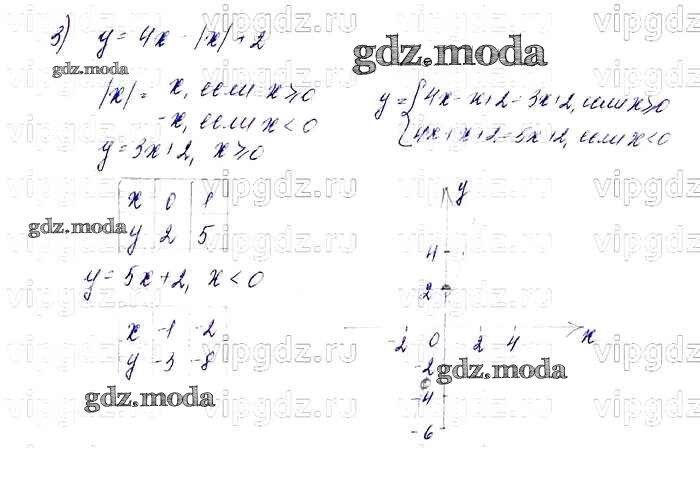 3) y = 4x - |x| + 2
|x| = x, если x ≥ 0
-x, если x < 0
y = { 4x - x + 2 = 3x + 2, если x ≥ 0
4x + x + 2 = 5x + 2, если x < 0
y = 3x + 2, x ≥ 0
x 0 1
y 2 5
y = 5x + 2, x < 0
x -1 -2
y -3 -8
y
4
2
-2 0 2 4 x
-2
-4
-6
gdz.moda
gdz.moda
gdz.moda
gdz.moda
gdz.moda
vipgdz.ru